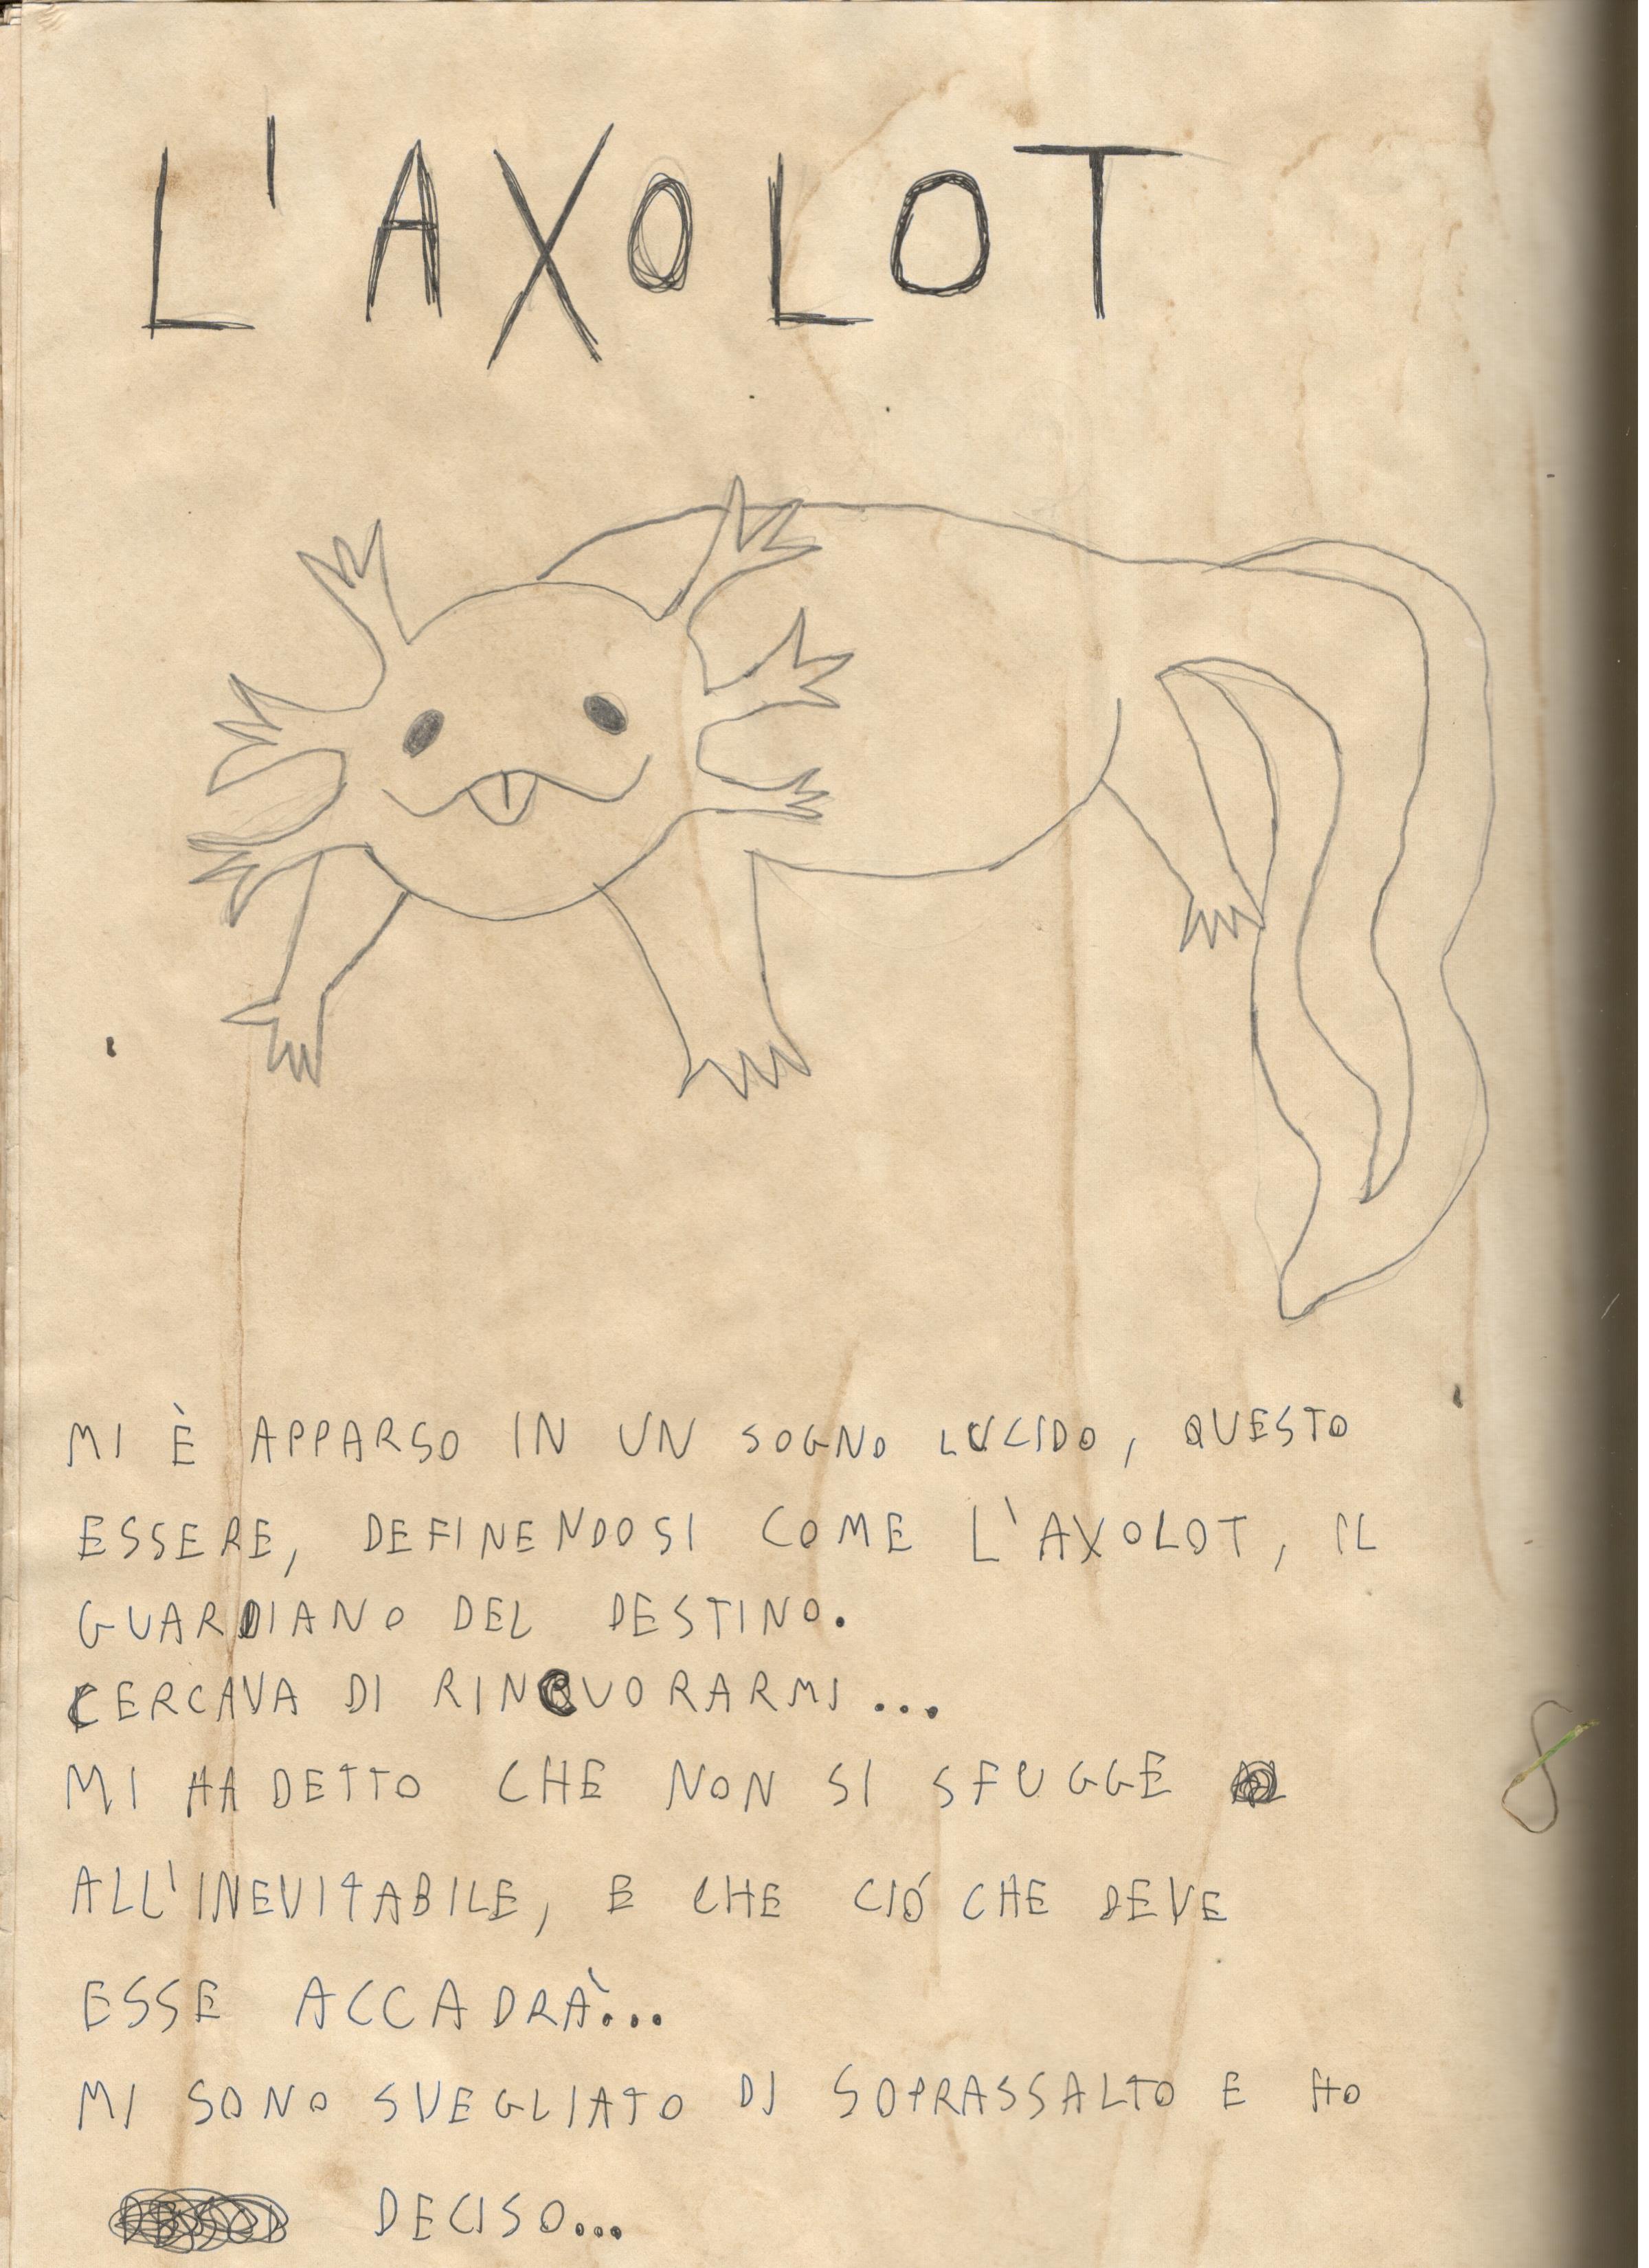 L'AXOLOT
MI È APPARSO IN UN SOGNO LUCIDO, QUESTO
ESSERE, DEFINENDOSI COME L'AXOLOT, IL
GUARDIANO DEL DESTINO.
CERCAVA DI RINCUORARMI...
MI HA DETTO CHE NON SI SFUGGE
ALL'INEVITABILE, E CHE CIÓ CHE DEVE
ESSE ACCADRÀ...
MI SONO SVEGLIATO DI SOPRASSALTO E HO
DECISO...